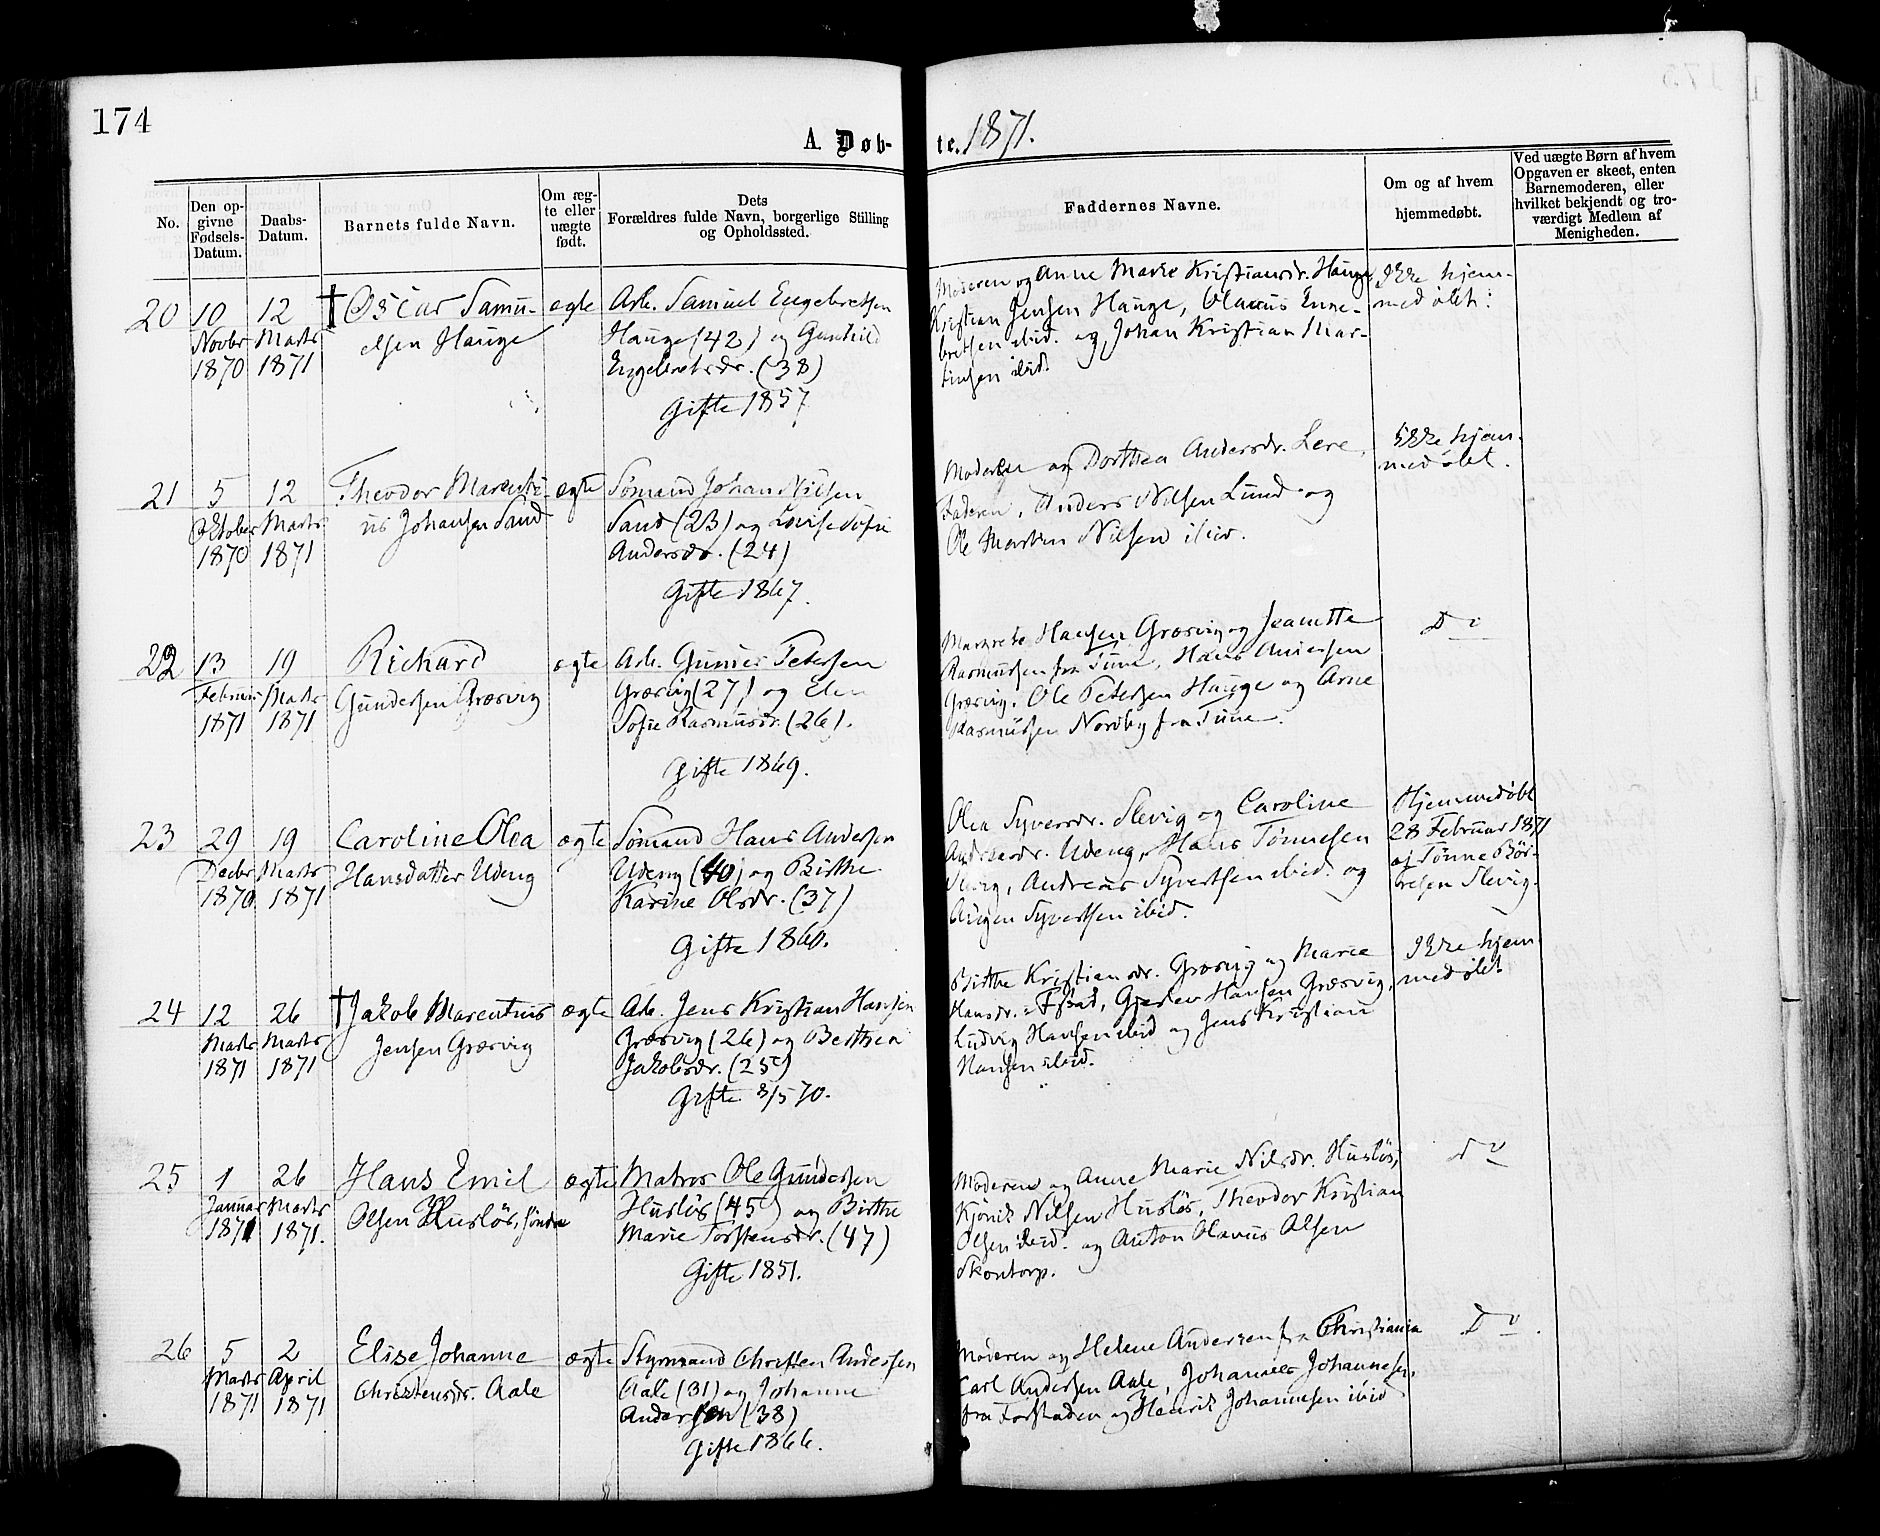 174
A. Døb-
te. 1871.
No.
Den op-
givne
Fødsels-
Datum.
Daabs-
Datum.
Barnets fulde Navn.
Om æg-
te eller
uægte
født.
Dets
Forældres fulde Navn, borgerlige Stilling
og Opholdssted.
Faddernes Navne.
Om og af hvem
hjemmedøbt.
Ved uægte Børn af hvem
Opgaven er skeet, enten
Barnemoderen, eller
hvilket bekjendt og tro-
værdigt Medlem af
Menigheden.
20
10
Novbr
1870
12
Marts
1871
† Oscar Samu-
elsen Hauge
ægte
Arb. Samuel Engebretsen
Hauge (42) og Gunhild
Engebretsdr. (38)
Gifte 1857
Moderen og Anne Marie Kristiansdr. Hauge
Kristian Jensen Hauge, Olaus Enge-
bretsen ibid. og Johan Kristian Mar-
tinsen ibid.
Ikke hjem-
medøbt.
21
5
Oktober
1870
12
Marts
1871
Theodor Marenti-
us Johansen Sand
ægte
Sømand Johan Nilsen
Sand (23) og Lovise Sofie
Andersdr. (24)
Gifte 1867.
Moderen og Dorthea Andersdr. Lere,
Faderen, Anders Nilsen Lund og
Ole Martin Nilsen ibid.
Ikke hjem-
medøbt.
22
13
Februar
1871
19
Marts
1871
Richard
Gundersen Græsvig
ægte
Arb. Gunder Petersen
Græsvig (27) og Elen
Sofie Rasmusdr. (26).
Gifte 1869.
Margrete Hansen Græsvig og Jeanette
Rasmussen fra Tune, Hans Andersen
Græsvig. Ole Petersen Hauge og Arne
Rasmussen Nordby fra Tune.
Do
23
29
Decbr
1870
19
Marts
1871
Caroline Olea
Hansdatter Udeng
ægte
Sømand Hans Andersen
Udeng (40) og Birthe
Karine Olsdr. (37)
Gifte 1860.
Olea Syversdr. Slevig og Caroline
Andreasdr. Udeng, Hans Tønnesen
Slevig, Andreas Syvertsen ibid. og
Syvertsen ibid.
Hjemmedøbt
28 Februar 1871
af Tønne Bør-
resen Slevig.
24
12
Marts
1871
26
Marts
1871
† Jakob Marentius
Jensen Græsvig
ægte
Arb. Jens Kristian Hansen
Græsvig (26) og Berthea
Jakobsdr. (25)
Gifte 8/5 70.
Birthe Kristiansdr. Græsvig og Marie
Hansdr. i Fstad, Gjerlev Hansen Græsvig,
Ludvig Hansen ibid og Jens Kristian
Hansen ibid.
Ikke hjem-
medøbt
25
1
Januar
1871
26
Marts
1871.
Hans Emil
Olsen Husløs, søndre
ægte
Matros Ole Gundersen
Husløs (45) og Birthe
Marie Torstensdr. (47)
Gifte 1851.
Moderen og Anne Marie Nilsdr. Husløs,
Kjønik Nilsen Husløs, Theodor Kristian
Olsen ibid. og Anton Olavus Olsen
Skontorp.
Do
26
5
Marts
1871
2
April
1871
Elise Johanne
Christensdr. Aale
ægte
Styrmand Christen Andersen
Aale (31) og Johanne
Andersen (38)
Gifte 1866.
Moderen og Helene Andersen fra Christiania
Carl Andersen Aale, Johannes Johannesen,
fra Forstaden og Henrik Johannesen ibid
Do.